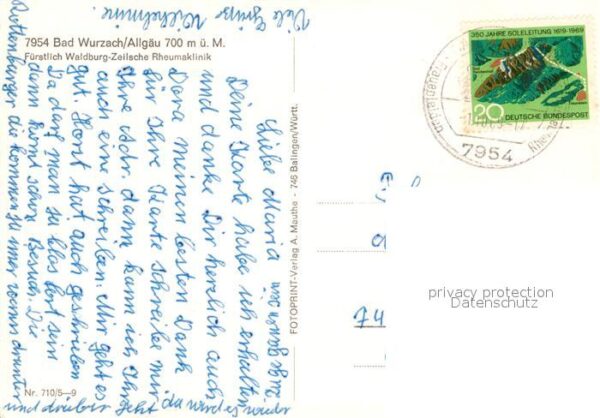 7954 Bad Wurzach/Allgäu 700 m ü. M.
Fürstlich Waldburg-Zeilsche Rheumaklinik
Liebe Maria
Deine Karte habe ich erhalten
und danke Dir herzlich auch
Dora meinen besten Dank
für Ihre Karte schreibe mir
Ihre adr. dann kann ich Ihr
auch eine schreiben. Mir geht es
gut. Horst hat auch geschrieben
Da darf man ja blos fort sein
dann kommt schon Besuch. Die
Rottenburger die kommen ja immer wenn
und drüber jetzt da werde ja wieder
Viele Grüße Wilhelmine.
FOTOPRINT-Verlag A. Mauthe - 746 Balingen/Württ.
Nr. 710/5—9
350 JAHRE SOLELEITUNG 1619-1969
20 DEUTSCHE BUNDESPOST
7954
74
privacy protection
Datenschutz